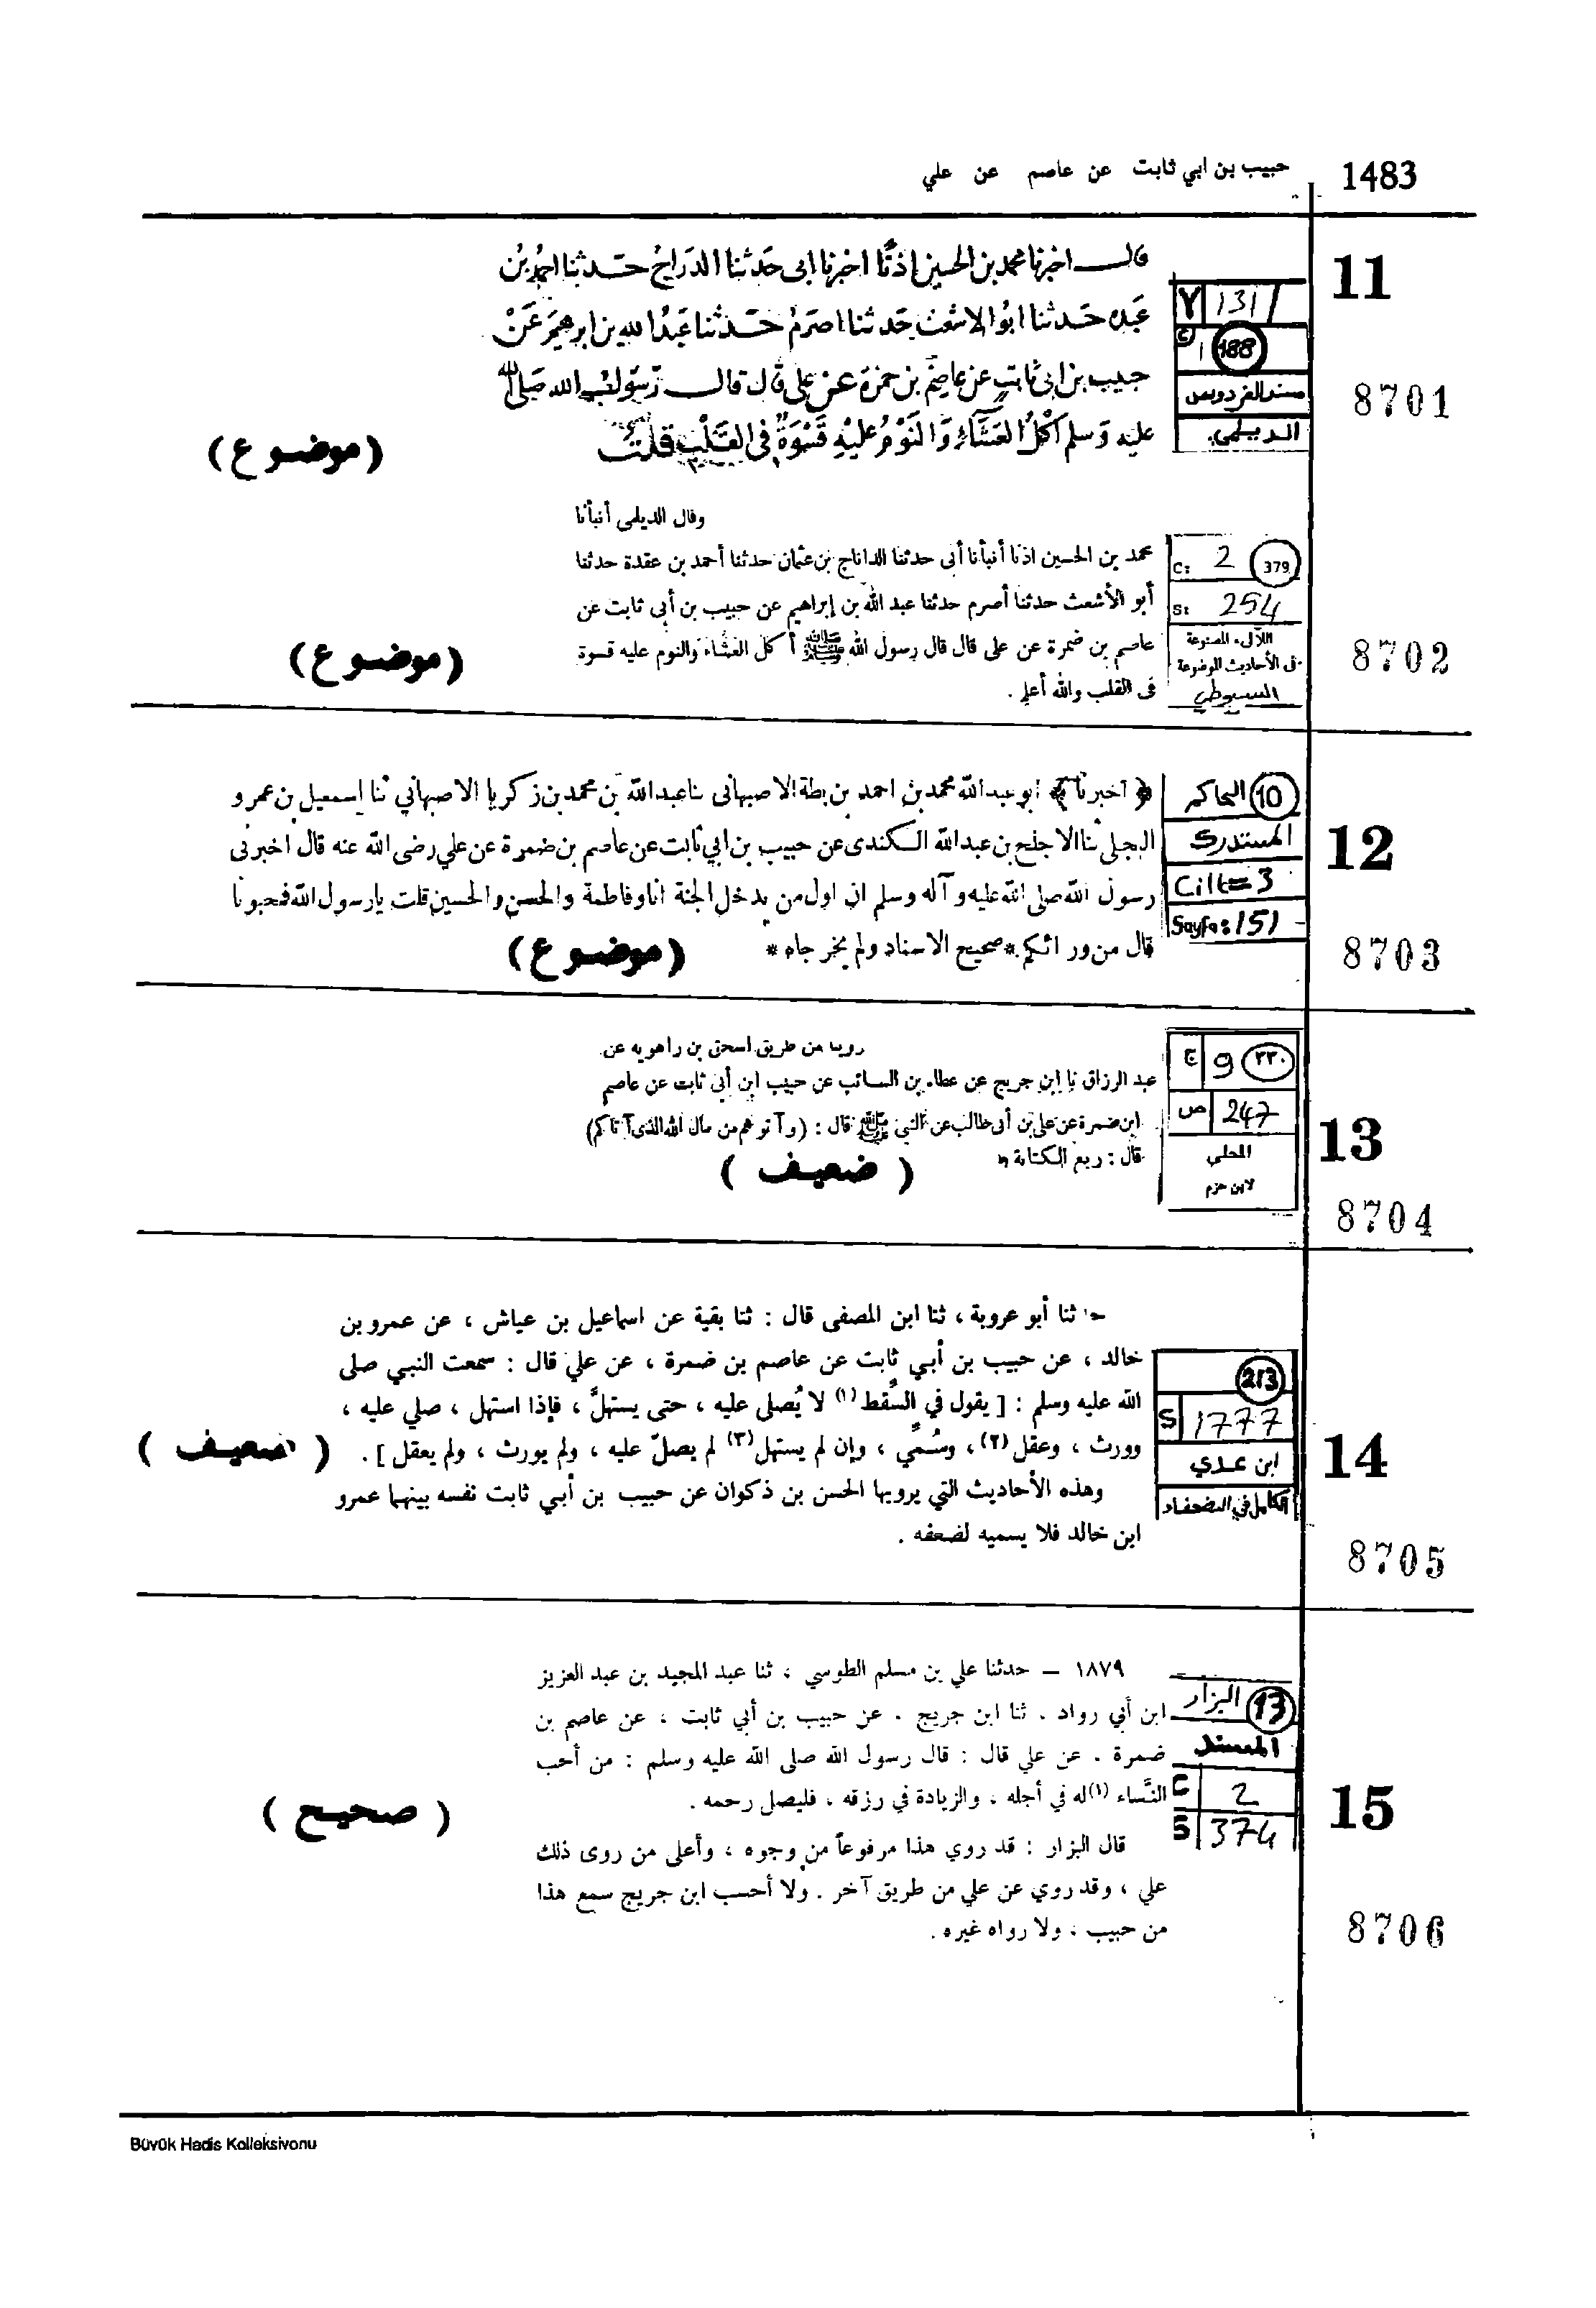 1483
حبيب بن ابي ثابت عن عاصم عن علي
11
قال اخبرنا محمد بن الحسين اذنًا اخبرنا ابى حدثنا الدراج حدثنا احمد بن
عبده حدثنا ابو الاشعث حدثنا اصرم حدثنا عبد الله بن ابرهيم عن
حبيب بن ابى ثابت عن عاصم بن حمزة عن على قال قال رسول الله صلى الله
عليه وسلم اكل العشاء والنوم عليه قسوة فى القلب قلت
(موضوع)
Y 131
C 1 188
مسند الفردوس
الديلمي
8701
وقال الديلمى أنبأنا
محمد بن الحسين اذنا أنبأنا أبى حدثنا الداناج بن عثمان حدثنا أحمد بن عقدة حدثنا
أبو الأشعث حدثنا أصرم حدثنا عبد الله بن إبراهيم عن حبيب بن أبى ثابت عن
عاصم بن ضمرة عن على قال قال رسول الله ﷺ أكل العشاء والنوم عليه قسوة
فى القلب والله أعلم .
(موضوع)
C: 2 379
S: 254
اللآلىء المصنوعة
فى الأحاديث الموضوعة
السيوطي
8702
12
﴿ اخبرنا ﴾ ابو عبد الله محمد بن احمد بن بطة الاصبهانى ثنا عبد الله بن محمد بن زكريا الاصبهاني ثنا إسمعيل بن عمرو
البجلى ثنا الاجلح بن عبد الله الكندى عن حبيب بن ابي ثابت عن عاصم بن ضمرة عن علي رضى الله عنه قال اخبرنى
رسول الله صلى الله عليه وآله وسلم ان اول من يدخل الجنة انا وفاطمة والحسن والحسين قلت يا رسول الله فمحبونا
قال من ورائكم * صحيح الاسناد ولم يخرجاه *
(موضوع)
10 الحاكم
المستدرك
Cilt= 3
Sayfa: 151
8703
روينا من طريق اسحق بن راهويه عن
عبد الرزاق نا ابن جريج عن عطاء بن السائب عن حبيب ابن أبي ثابت عن عاصم
ابن ضمرة عن على بن أبى طالب عن النبى ﷺ قال : (وآتوهم من مال الله الذى آتاكم)
قال : ربع الكتابة «
( ضعيف )
ج 9 ٢٣٠
ص 247
المحلى
لابن حزم
13
8704
ثنا أبو عروبة ، ثنا ابن المصفى قال : ثنا بقية عن اسماعيل بن عياش ، عن عمرو بن
خالد ، عن حبيب بن أبي ثابت عن عاصم بن ضمرة ، عن علي قال : سمعت النبي صلى
الله عليه وسلم : [ يقول في السَّقط (١) لا يُصلى عليه ، حتى يستهلَّ ، فإذا استهل ، صلي عليه ،
وورث ، وعقل (٢) ، وسُمّي ، وإن لم يستهل (٣) لم يصلّ عليه ، ولم يورث ، ولم يعقل ] .
وهذه الأحاديث التي يرويها الحسن بن ذكوان عن حبيب بن أبي ثابت نفسه بينهما عمرو
ابن خالد فلا يسميه لضعفه .
( ضعيف )
213
S 1777
ابن عدي
الكامل في الضعفاء
14
8705
١٨٧٩ – حدثنا علي بن مسلم الطوسي ، ثنا عبد المجيد بن عبد العزيز
ابن أبي رواد . ثنا ابن جريج . عن حبيب بن أبي ثابت ، عن عاصم بن
ضمرة . عن علي قال : قال رسول الله صلى الله عليه وسلم : من أحب
النَّساء (١) له في أجله ، والزيادة في رزقه ، فليصل رحمه .
قال البزار : قد روي هذا مرفوعاً من وجوه ، وأعلى من روى ذلك
علي ، وقد روي عن علي من طريق آخر . ولا أحسب ابن جريج سمع هذا
من حبيب ، ولا رواه غيره .
( صحيح )
13 البزار
المسند
C 2
S 374
15
8706
Büyük Hadis Kolleksiyonu